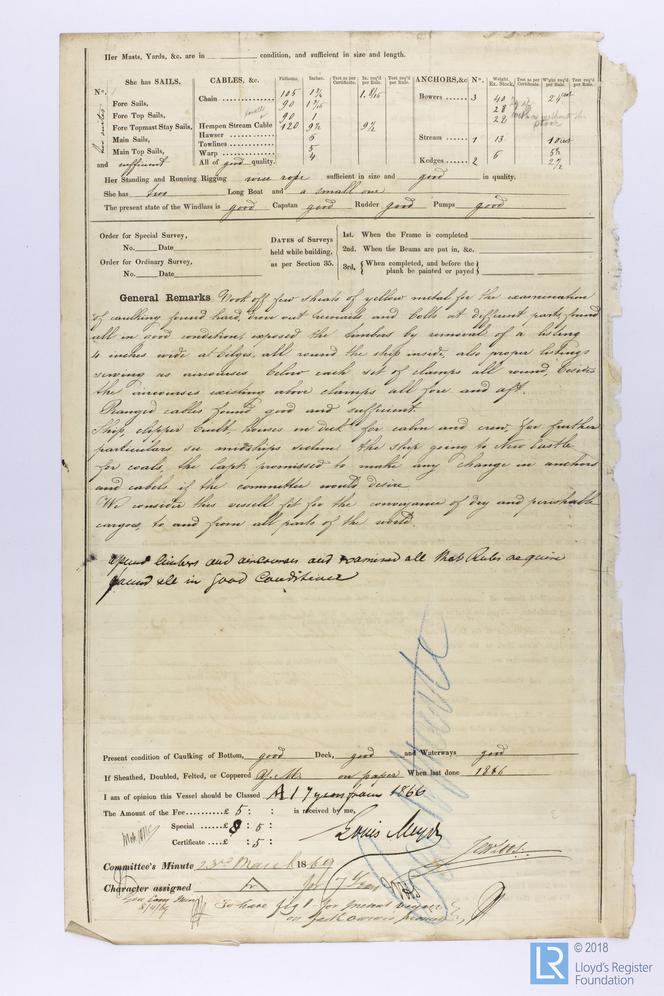 Her Masts, Yards, &c. are in condition, and sufficient in size and length.
She has SAILS. CABLES, &c. Fathoms. Inches. Test as per Certificate. In. req'd per Rule. Test req'd per Rule. ANCHORS, &c. N°. Weight Ex. Stock. Test as per Certificate. W'ght req'd per Rule. Test req'd per Rule.
N°.
two suites
Fore Sails, Chain 105 Bowers 3 40
Fore Top Sails, 90 28
90 1 28
Fore Topmast Stay Sails, Hempen Stream Cable 120 9½ 9½
Main Sails, Hawser 6 Stream 1 13 10 cwt
Main Top Sails, Towlines 5 6 5½
Warp 4 Kedges 2 2½
and sufficient All of good quality.
Her Standing and Running Rigging wire rope sufficient in size and good in quality.
She has two Long Boat and a small one
The present state of the Windlass is good Capstan good Rudder good Pumps good
Order for Special Survey, No. Date
Order for Ordinary Survey, No. Date
DATES of Surveys held while building, as per Section 35.
1st. When the Frame is completed
2nd. When the Beams are put in, &c.
3rd, { When completed, and before the plank be painted or payed }
General Remarks Took off few sheats of yellow metal for the examination
of caulking found hard, drove out treenails and bolts at different parts, found
all in good condition, exposed the timbers by removal of a listing
4 inches wide at bilges, all round the ship inside, also proper listings
serving as aircourses below each set of clamps all round, besides
the aircourses existing above clamps all fore and aft.
Ranged cables found good and sufficient.
Ship, clipper built, houses on deck for cabin and crew, for further
particulars see midships section the ship going to New Castle
for coals, the capt promissed to make any change in anchors
and cabels if the committee would desire
We consider this vessell fit for the conveyance of dry and perishable
cargoes to and from all parts of the world.
opened limbers and aircourses and examined all that Rules require
found all in good Conditione
Present condition of Caulking of Bottom, good Deck, good and Waterways good
If Sheathed, Doubled, Felted, or Coppered Y. M. on paper When last done 1866
I am of opinion this Vessel should be Classed A 1 7 years from 1866
The Amount of the Fee £ 5 : : is received by me,
Special £ : 5 :
Certificate : 5 :
Louis Meyer
Committee's Minute 23rd March 1869
Character assigned
© 2018
LR
Lloyd's Register
Foundation